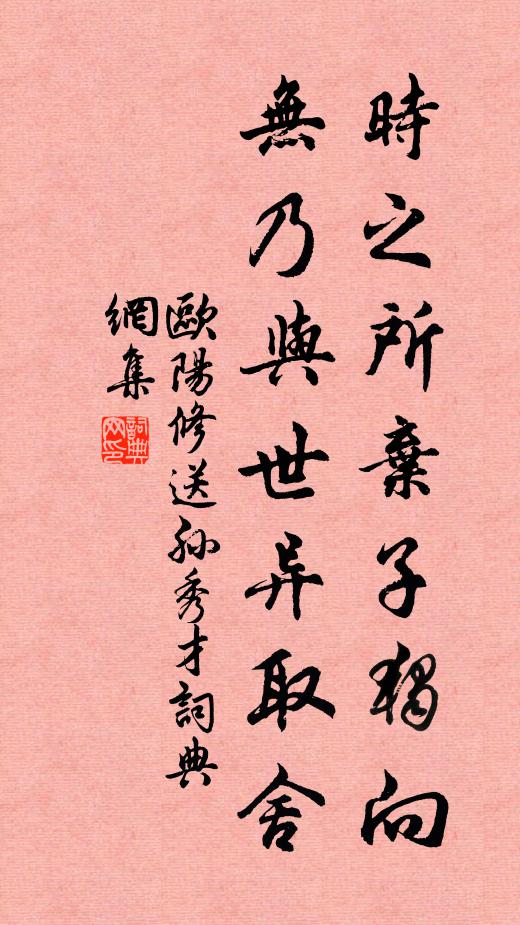 時之所棄子獨向
無乃與世异取舍
歐陽修送孙秀才詞典
網集
詞典网印